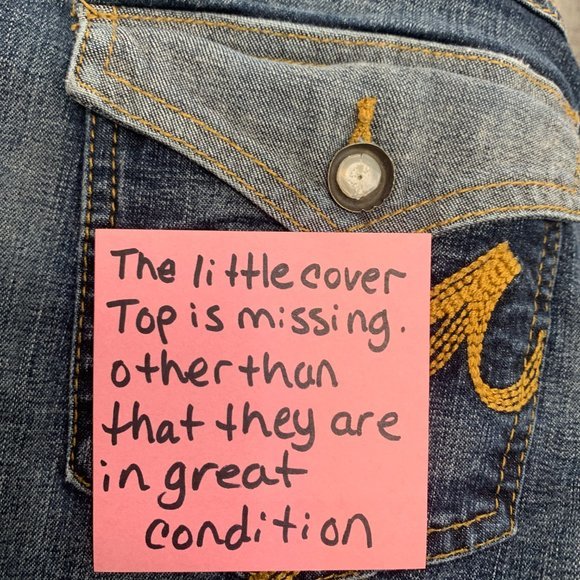 The little cover
Top is missing.
other than
that they are
in great
condition